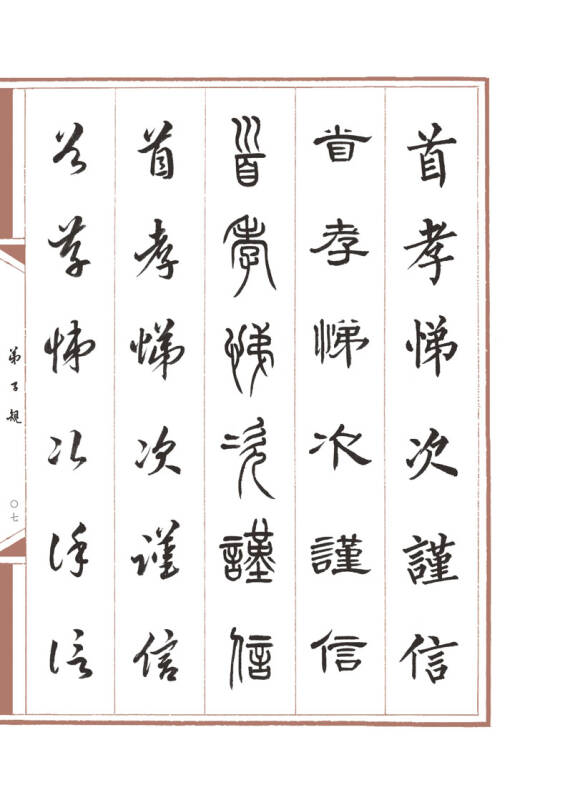 首孝悌次謹信
首孝悌次謹信
首孝悌次謹信
首孝悌次謹信
首孝悌次謹信
弟子規
〇七